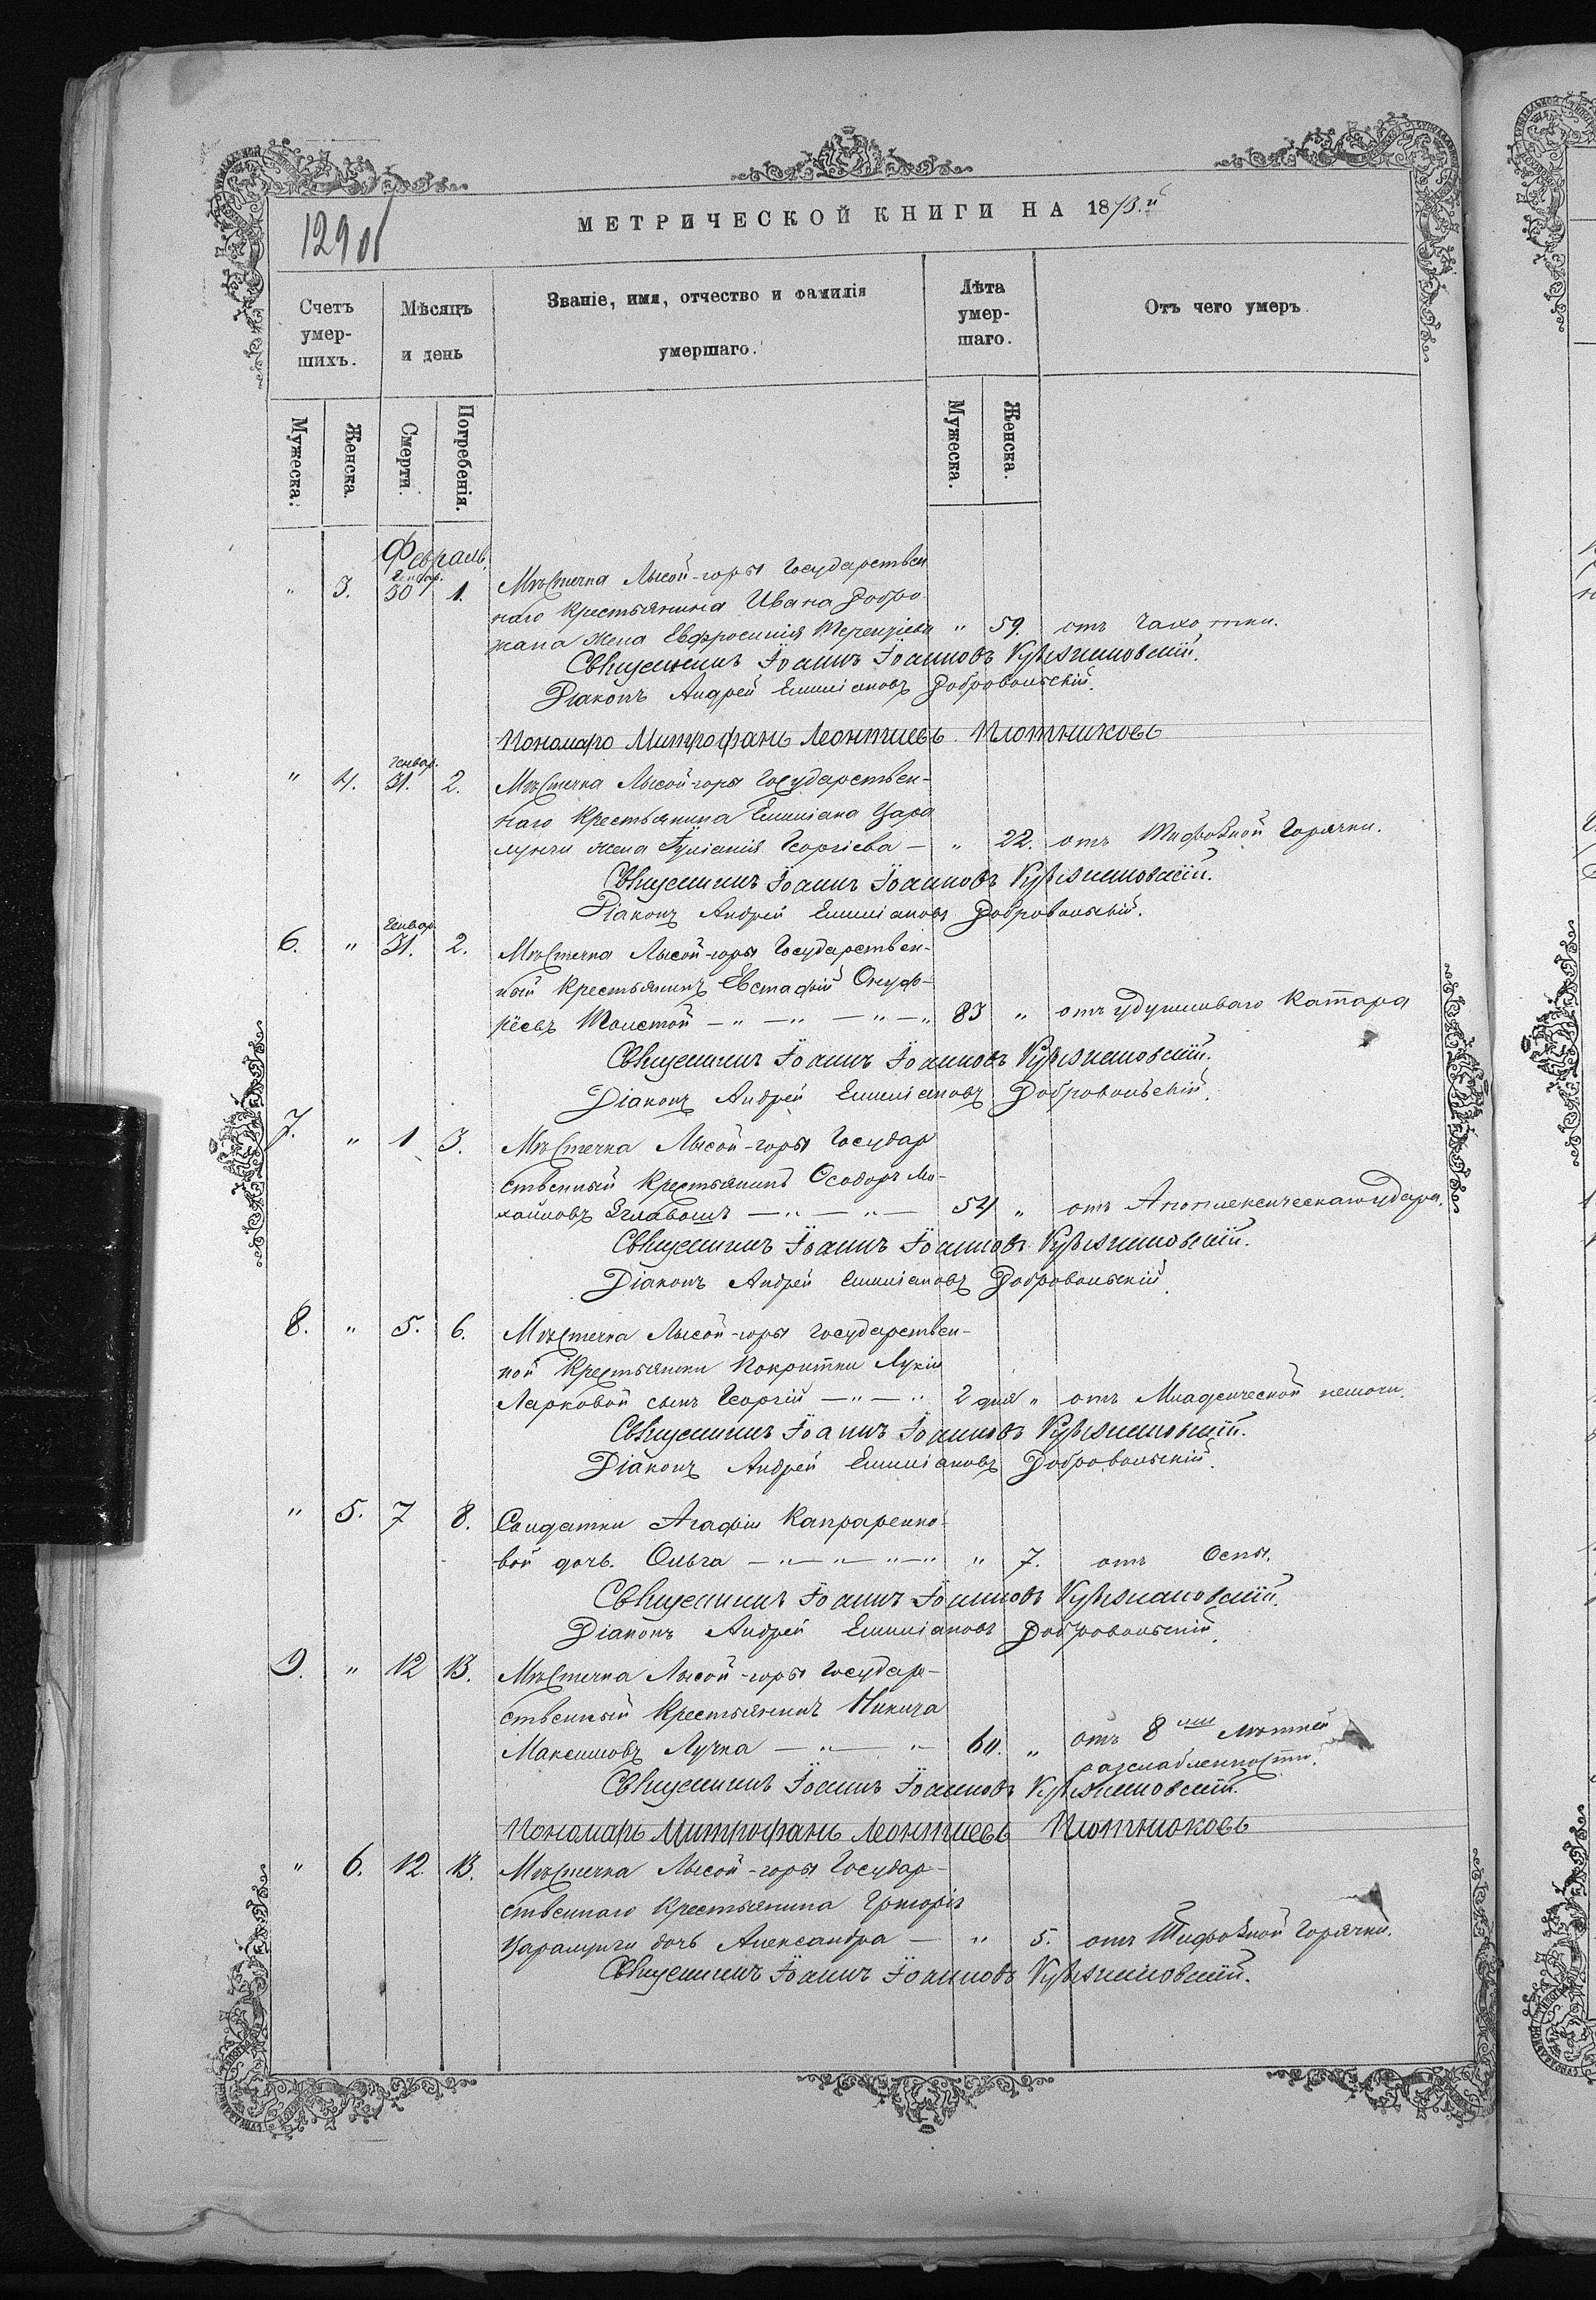 129 об
МЕТРИЧЕСКОЙ КНИГИ НА 1873.й
Счетъ умер- шихъ.
Мѣсяцъ и день
Званіе, имя, отчество и фамилія умершаго.
Лѣта умер- шаго.
Отъ чего умеръ.
Мужеска.
Женска.
Смерти.
Погребенія.
Мужеска.
Женска.
Февраль.
Генвар.
" 3. 30 1. Мѣстечка Лысой-горы Государствен
наго Крестьянина Ивана Добро
жана жена Евфросинія Терентіева " 59. отъ чахотки.
Священникъ Іоаннъ Іоанновъ
Діаконъ Андрей Емиліановъ Добровольскій.
Пономарь Митрофанъ Леонтиевъ Плотниковъ
Генвар.
" 4. 31. 2. Мѣстечка Лысой-горы Государствен-
наго Крестьянина Емиліана Цара
лунги жена Іуліанія Георгіева — " 22. отъ Тифозной Горячки.
Священникъ Іоаннъ Іоанновъ
Діаконъ Андрей Емиліановъ Добровольскій.
Генвар.
6. " 31. 2. Мѣстечка Лысой-горы Государствен-
ный Крестьянинъ Евстафій Онуф-
ріевъ Толстой — " — " — " — " 83 " отъ удушливаго Катара
Священникъ Іоаннъ Іоанновъ
Діаконъ Андрей Емиліановъ Добровольскій.
7. " 1 3. Мѣстечка Лысой-горы Государ
ственный Крестьянинъ Ѳеодоръ Ми-
хайловъ — " — " — 54 " отъ Апоплексическаго удара.
Священникъ Іоаннъ Іоанновъ
Діаконъ Андрей Емиліановъ Добровольскій.
8. " 5. 6. Мѣстечка Лысой-горы Государствен-
ной Крестьянки Покритки Лукіи
Ларковой сынъ Георгій — " — " 2 дня " отъ Младенческой немочи.
Священникъ Іоаннъ Іоанновъ
Діаконъ Андрей Емиліановъ Добровольскій.
" 5. 7 8. Солдатки Агафіи Капраренко-
вой дочь. Ольга — " — " — " — " " 7. отъ Оспы.
Священникъ Іоаннъ Іоанновъ
Діаконъ Андрей Емиліановъ Добровольскій.
9. " 12 13. Мѣстечка Лысой-горы Государ-
ственный Крестьянинъ Никита
Максимовъ Лучка — " — " 60. " отъ 8ми лѣтней
разслабленности.
Священникъ Іоаннъ Іоанновъ
Пономарь Митрофанъ Леонтиевъ Плотниковъ
" 6. 12. 13. Мѣстечка Лысой-горы Государ-
ственнаго Крестьянина Григорія
Царалунги дочь Александра — " 5. отъ Тифозной Горячки.
Священникъ Іоаннъ Іоанновъ